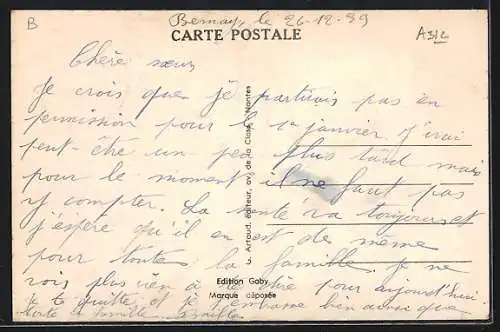 B
Bernay, le 26-12-39
A31L
CARTE POSTALE
Chère sœur
Je crois que je partirais pas en
permission pour le 1er janvier j'irai
peut-être un peu plus tard mais
pour le moment il ne faut pas
y compter. La santé va toujours et
j'espère qu'il en est de même
pour toute la famille. Je ne
vois plus rien à te dire pour aujourd'hui
je te quitte et je t'embrasse bien ainsi que
toute la famille
G. Artaud, éditeur, av. de la Close, Nantes
Edition Gaby
Marque déposée